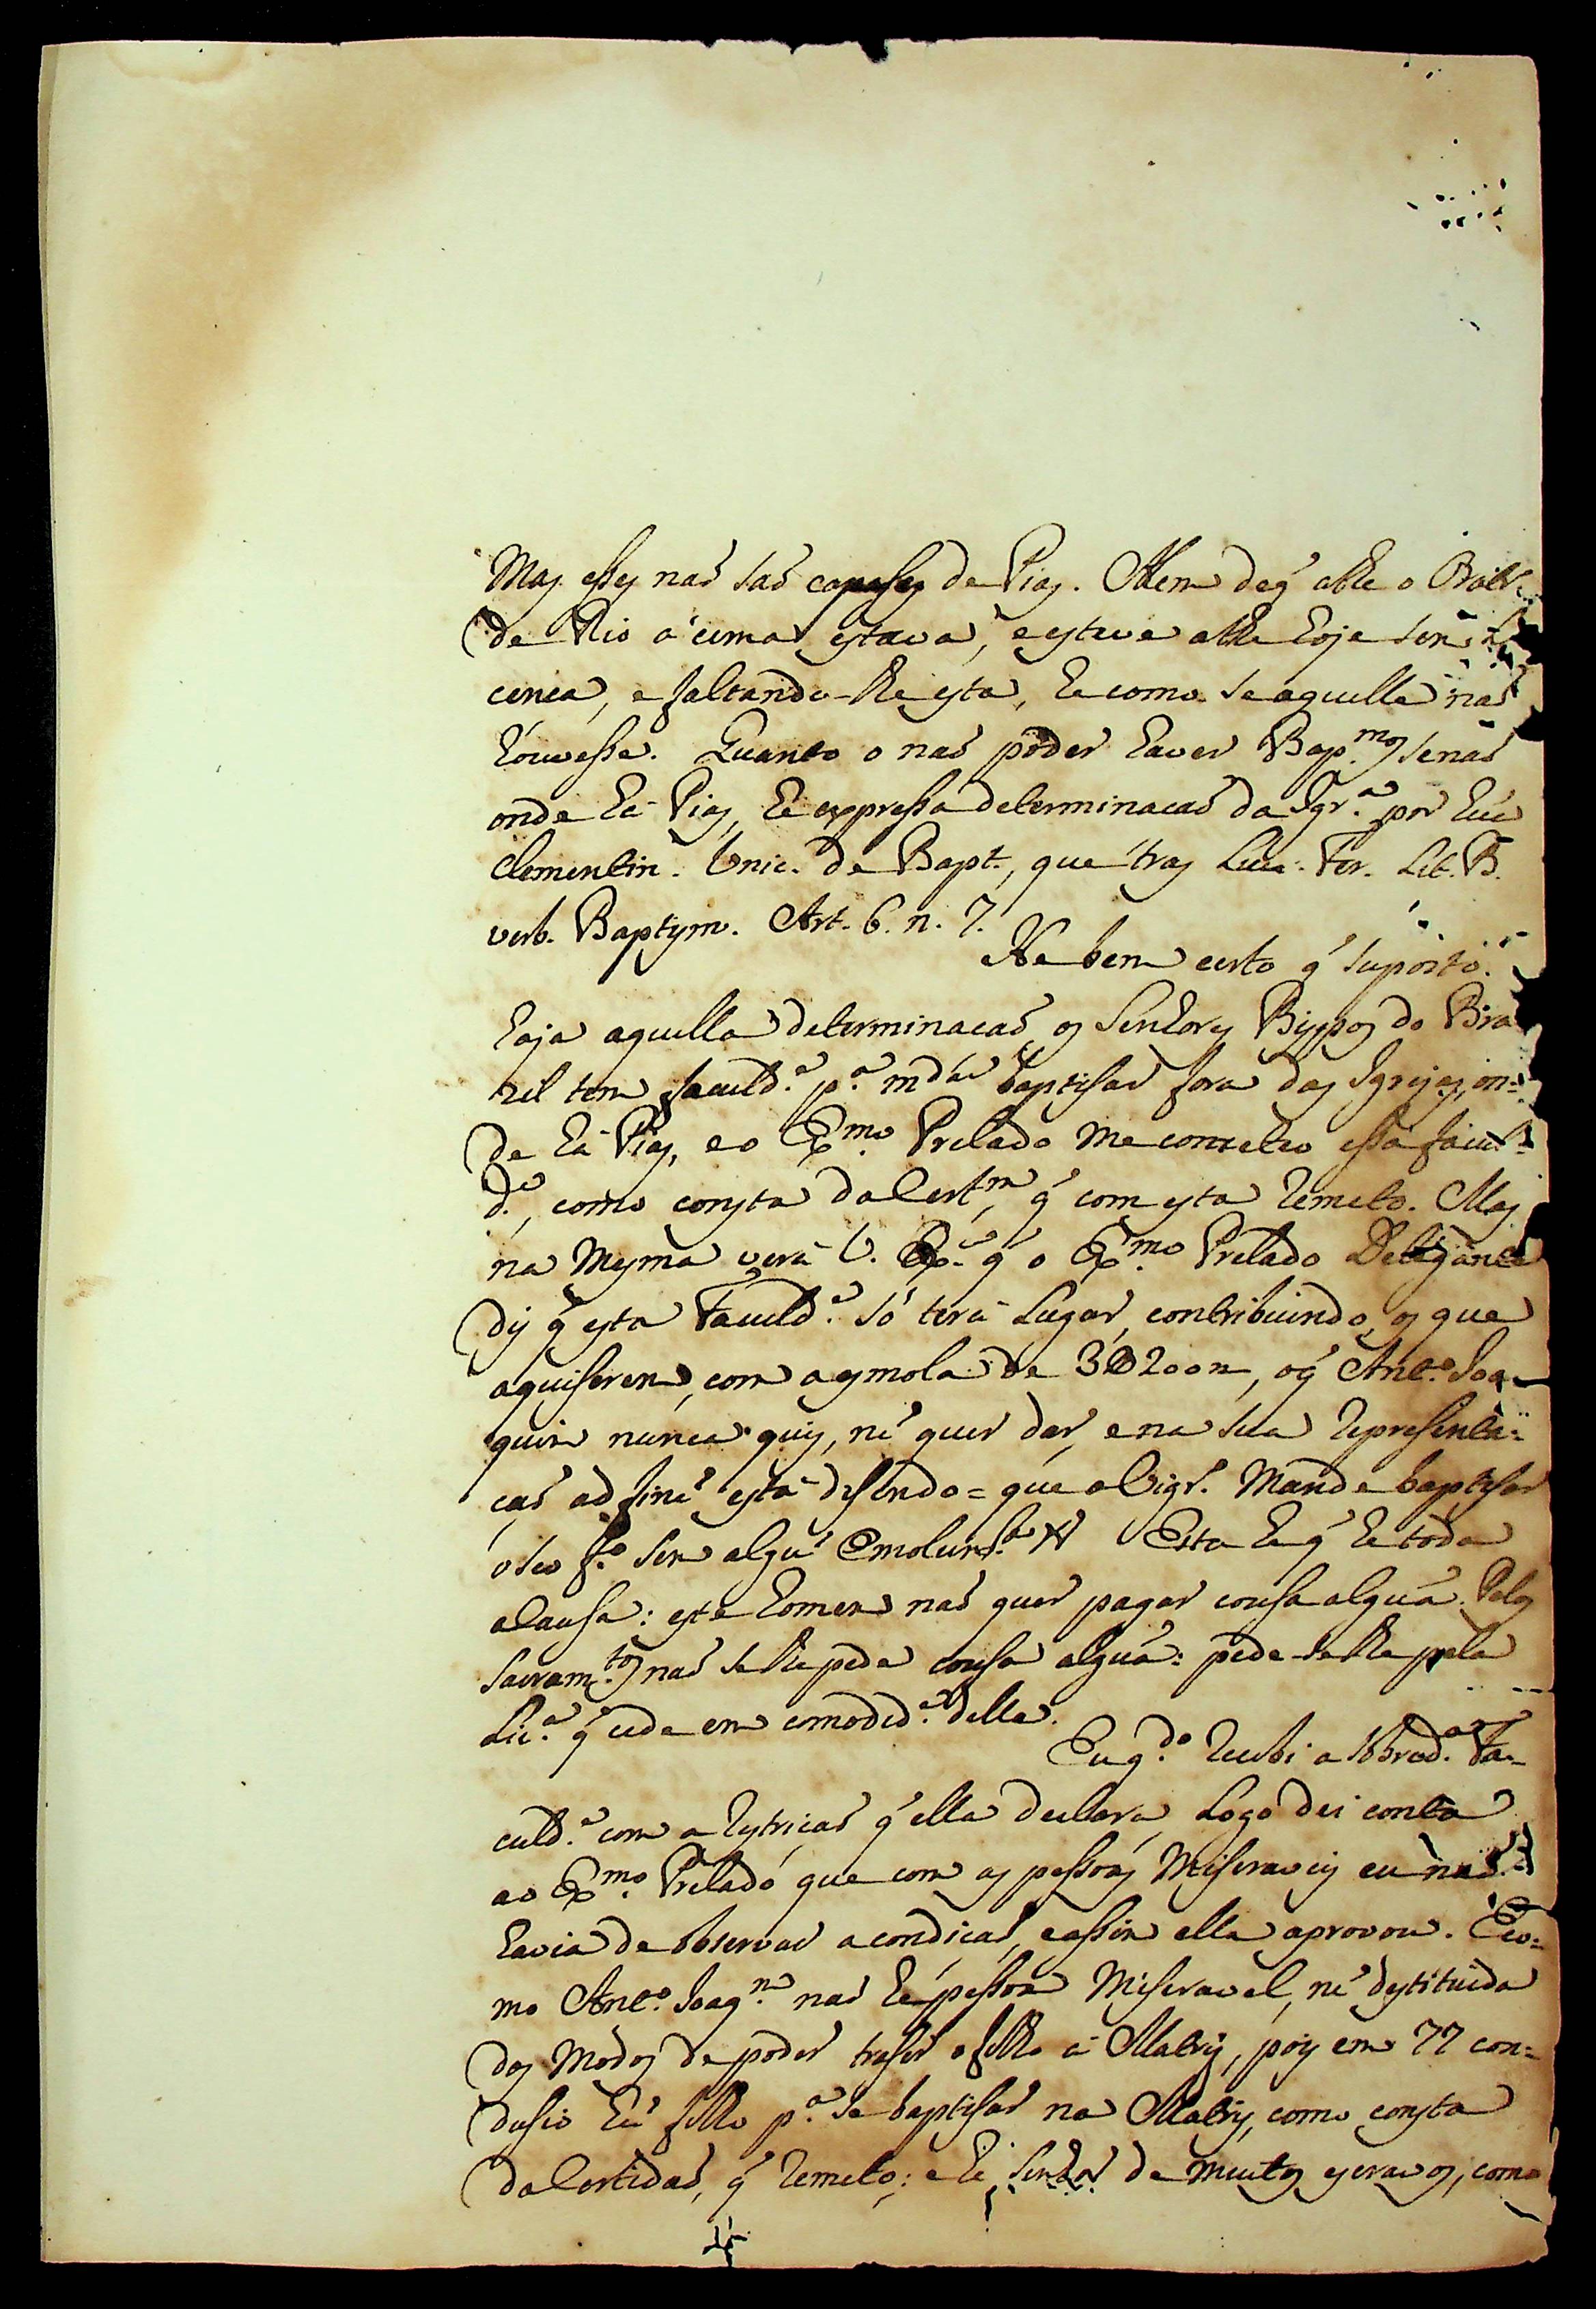 Mas esses naõ saõ capases de Pias. Alem deq́ athe o Orat.
de Rio acima estava, e esteve athe hoje sem li
cenca, e faltando-lhe esta, he como se aquelle naõ
houvesse. Quanto o naõ poder haver Bap.mos senaõ
onde há Pias, he expressa determinacaõ da Igr.ª por huã
Clementin. Unic. de Bapt., que tras Luc. Fer. Lit. B.
verb. Baptism. Art. 6. n. 7.
He bem certo q́ suposto
haja aquella determinacaõ, os Senhores Bispos do Bra
zil tem faculd.e p.ª mdár baptisar fora das Igrejas, on=
de há Pias, e o Ex.mo Prelado me conceleo essa facul
d.e, como consta da Cert.m, q́ com esta remeto. Mas
na mesma verá V. Ex.ª q́ o Ex.mo Prelado Delegante
dis q́ esta Faculd.e só terá lugar, contribuindo, os que
aquiserem, com a esmola de 3$200 rs, oq́ Ant.o Joa
quim nunca quis, nẽ quer dar, e na sua representa=
caõ ad finẽ está disendo = que o Vigr.o mande baptisar
o seo f.o sem algũ emolum.to // Esta he q́ he toda
a Causa: este homem naõ quer pagar cousa alguã. Pelos
Sacram.tos naõ se lhe pede cousa alguã: pede-se lhe pela
Lic.ª q́ cede em comodid.e della.
Eu q.do recebi a sobred.ª Fa-
culd.e com a restricaõ q́ ella declara, logo dei conta
ao Ex.mo Prelado que com as pessoas miseraveis eu naõ
havia de observar a condicaõ, e assim elle aprovou. E co=
mo Ant.o Joaq.m naõ he pessoa miseravel, nẽ destituida
dos modos de poder traser o filho á Matris, pois em 77 con=
dusio hũ filho p.ª se baptisar na Matris, como consta
da Certidaõ, q́ remeto: e he senhor de muitos escravos, como